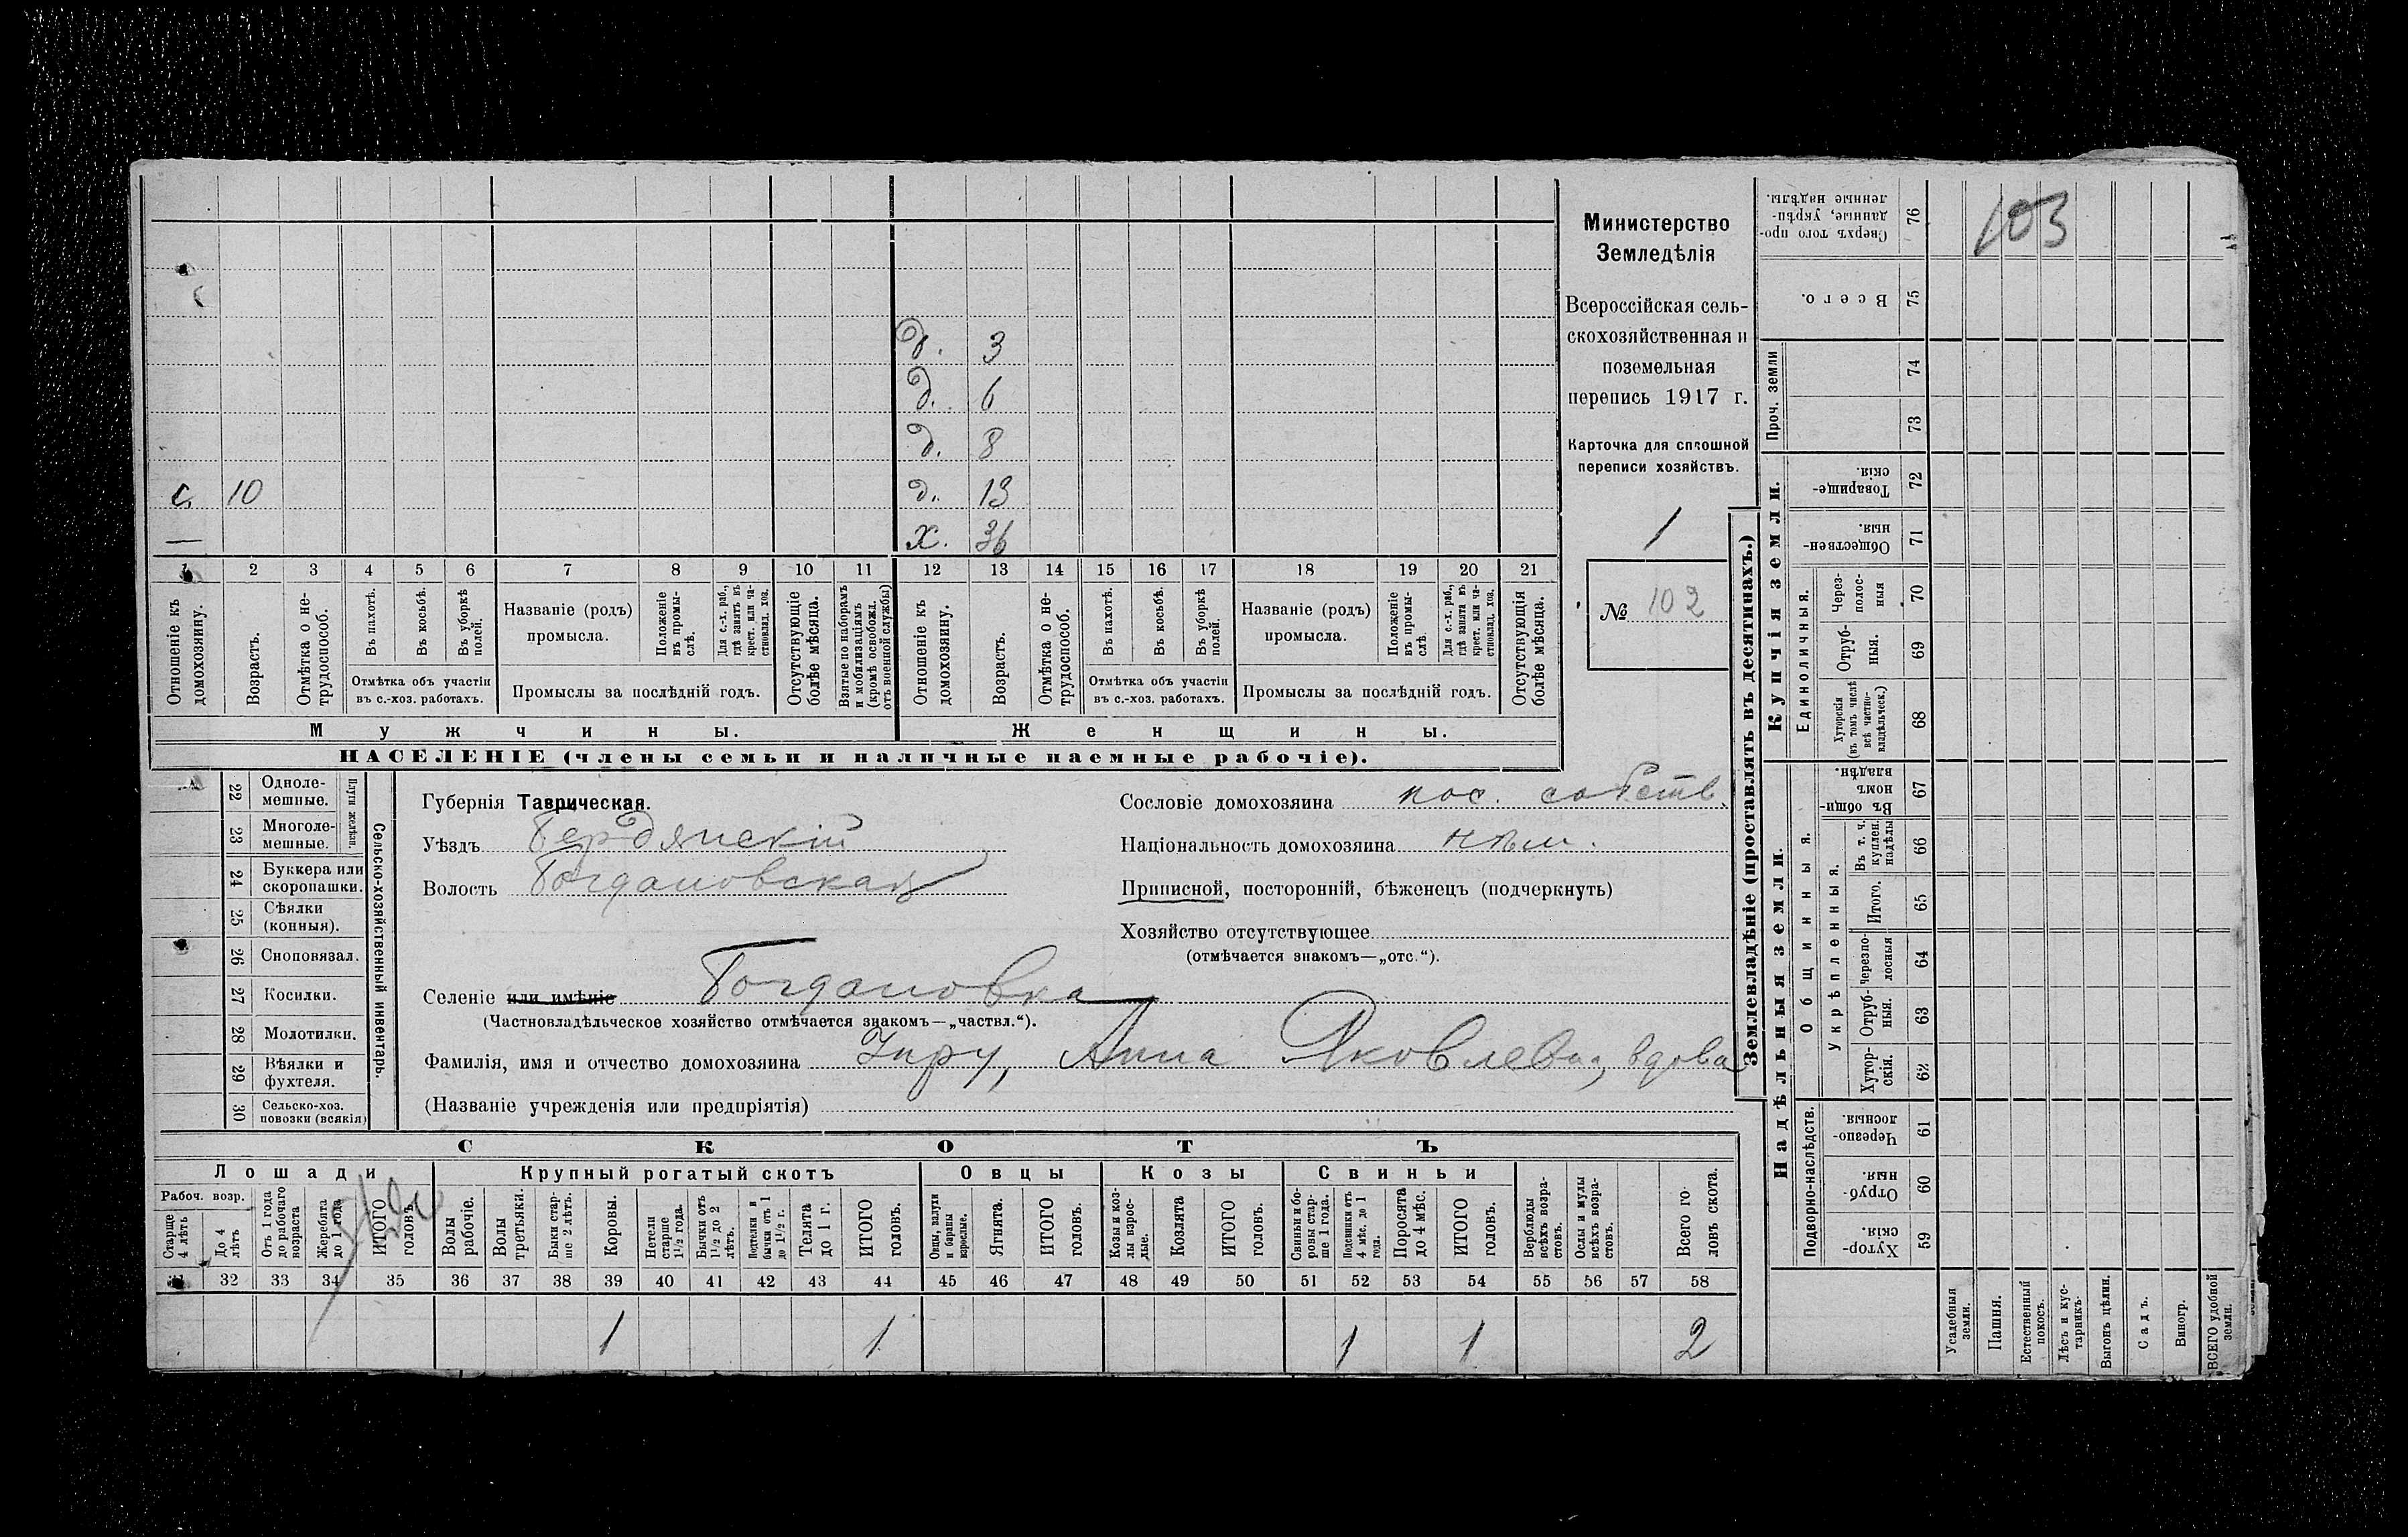 Министерство
Земледѣлія
Всероссійская сель-
скохозяйственная и
поземельная
перепись 1917 г.
Карточка для сплошной
переписи хозяйствъ.
1
№ 102
д. 3
д. 6
д. 8
с. 10 д. 13
— х. 36
1 2 3 4 5 6 7 8 9 10 11 12 13 14 15 16 17 18 19 20 21
Отношеніе къ домохозяину.
Возрастъ.
Отмѣтка о не-трудоспособ.
Въ пахотѣ.
Въ косьбѣ.
Въ уборкѣ полей.
Отмѣтка объ участіи
въ с.-хоз. работахъ.
Названіе (родъ)
промысла.
Положеніе въ промы-слѣ.
Для с.-х. раб., гдѣ занятъ въ крест. или ча-стновлад. хоз.
Промыслы за послѣдній годъ.
Отсутствующіе болѣе мѣсяца.
Взятые по наборамъ и мобилизаціямъ (кромѣ освобожд. отъ военной службы)
Отношеніе къ домохозяину.
Возрастъ.
Отмѣтка о не-трудоспособ.
Въ пахотѣ.
Въ косьбѣ.
Въ уборкѣ полей.
Отмѣтка объ участіи
въ с.-хоз. работахъ.
Названіе (родъ)
промысла.
Положеніе въ промы-слѣ.
Для с.-х. раб., гдѣ занята въ крест. или ча-стновлад. хоз.
Промыслы за послѣдній годъ.
Отсутствующія болѣе мѣсяца.
Мужчины. Женщины.
НАСЕЛЕНІЕ (члены семьи и наличные наемные рабочіе).
22 Одноле-мешные.
23 Многоле-мешные.
Плуги желѣзн.
24 Буккера или скоропашки.
25 Сѣялки (конныя).
26 Сноповязал.
27 Косилки.
28 Молотилки.
29 Вѣялки и фухтеля.
30 Сельско-хоз. повозки (всякія)
Сельско-хозяйственный инвентарь.
Губернія Таврическая.
Уѣздъ Бердянскій
Волость Богдановская
Сословіе домохозяина пос. собств.
Національность домохозяина нѣм.
Приписной, посторонній, бѣженецъ (подчеркнуть)
Хозяйство отсутствующее
(отмѣчается знакомъ—„отс.“).
Селеніе или имѣніе Богдановка
(Частновладѣльческое хозяйство отмѣчается знакомъ—„частвл.“).
Фамилія, имя и отчество домохозяина Унру, Анна Яковлевна, вдова
(Названіе учрежденія или предпріятія)
СКОТЪ
Лошади Крупный рогатый скотъ Овцы Козы Свиньи
Рабоч. возр.
Старше 4 лѣтъ
До 4 лѣтъ
Отъ 1 года до рабочаго возраста
Жеребята до 1 года
ИТОГО головъ.
Волы рабочіе.
Волы третьяки.
Быки стар-ше 2 лѣтъ.
Коровы.
Нетели старше 1½ года.
Бычки отъ 1½ до 2 лѣтъ.
Подтелки и бычки отъ 1 до 1½ г.
Телята до 1 г.
ИТОГО головъ.
Овцы, валухи и бараны взрослые.
Ягнята.
ИТОГО головъ.
Козы и коз-лы взрос-лые.
Козлята
ИТОГО головъ.
Свиньи и бо-ровы стар-ше 1 года.
Подсвинки отъ 4 мѣс. до 1 года.
Поросята до 4 мѣс.
ИТОГО головъ.
Верблюды всѣхъ возра-стовъ.
Ослы и мулы всѣхъ возра-стовъ.
Всего го-ловъ скота.
31 32 33 34 35 36 37 38 39 40 41 42 43 44 45 46 47 48 49 50 51 52 53 54 55 56 57 58
1 1 1 1 2
103
Землевладѣніе (проставлять въ десятинахъ.)
Надѣльныя земли. Купчія земли. Проч. земли
Подворно-наслѣдств.
Общинныя.
Укрѣпленныя.
Единоличныя.
59 Хутор-скія.
60 Отруб-ныя.
61 Черезпо-лосныя.
62 Хутор-скія.
63 Отруб-ныя.
64 Черезпо-лосныя
65 Итого.
66 Въ т. ч. куплен. надѣлы
67 Въ общи-номъ владѣн.
68 Хуторскія (въ томъ числѣ всѣ частно-владѣльческ.)
69 Отруб-ныя.
70 Через-полос-ныя
71 Обществен-ныя.
72 Товарище-скія.
73
74
75 Всего.
76 Сверхъ того про-данные, укрѣп-ленные надѣлы.
Усадебныя земли.
Пашня.
Естественный покосъ.
Лѣсъ и кус-тарникъ.
Выгонъ цѣлин.
Садъ.
Виногр.
ВСЕГО удобной земли.